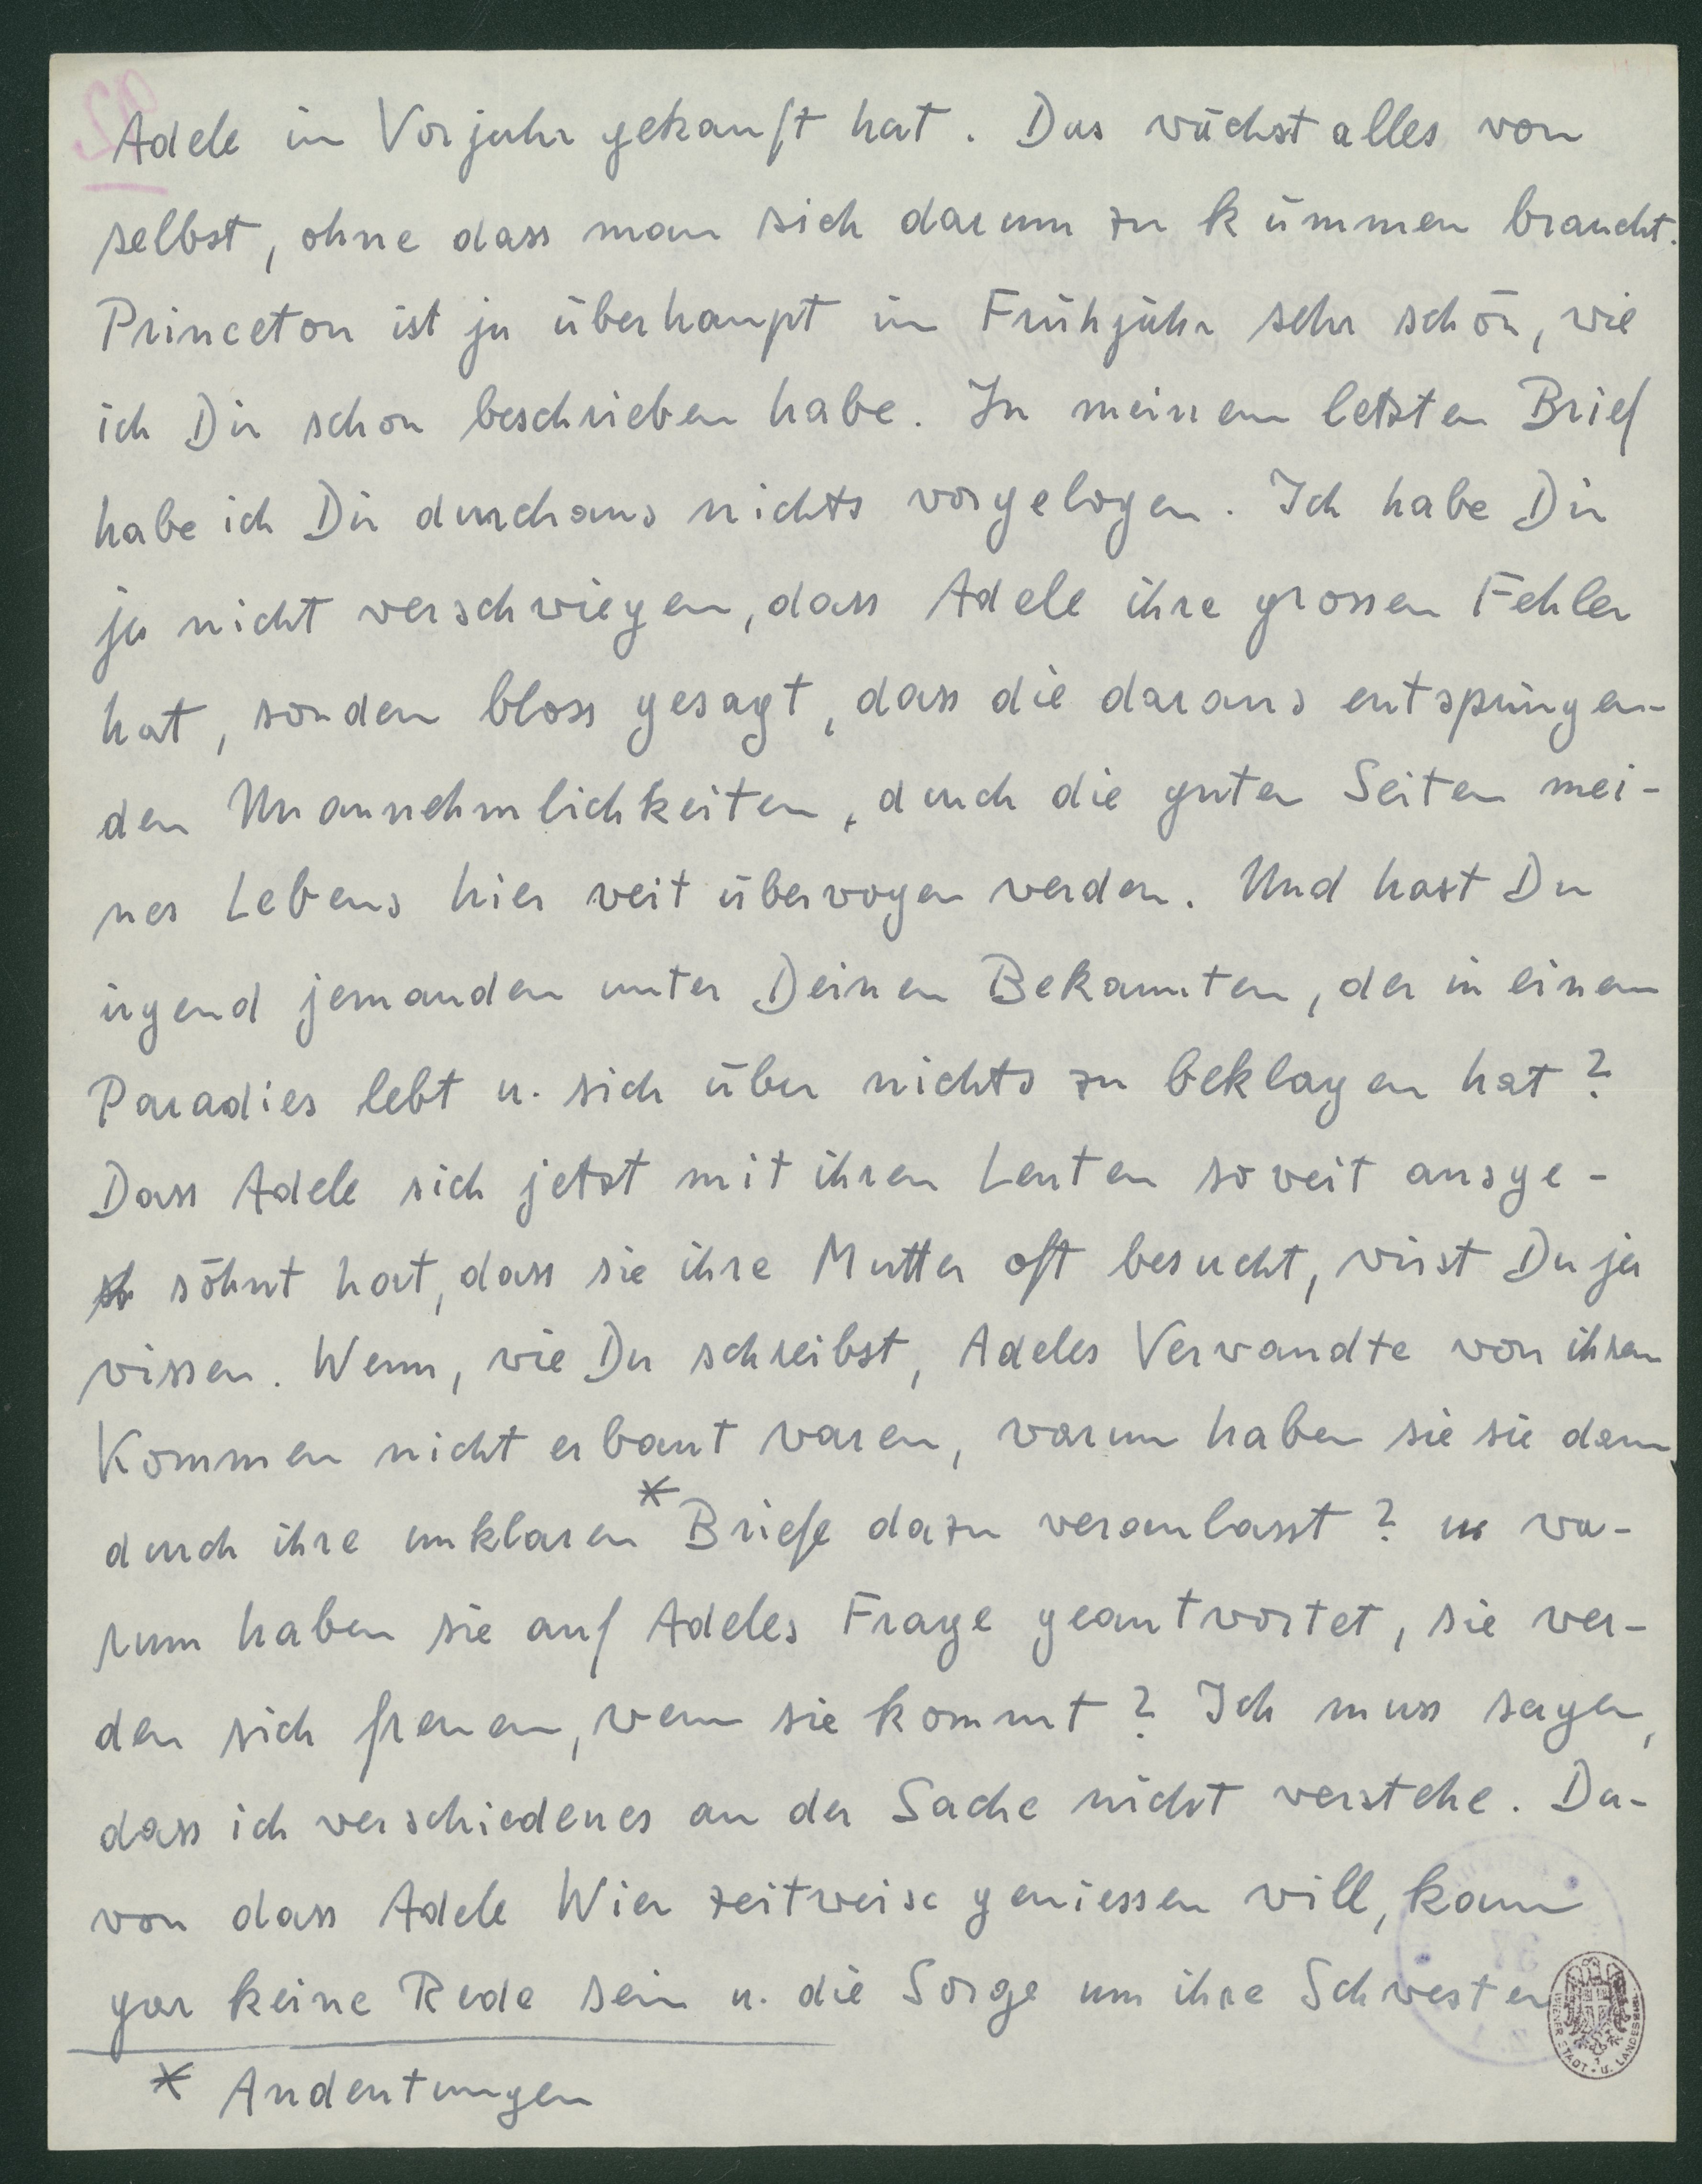 Adele im Vorjahr gekauft hat. Das wächst alles von
selbst, ohne dass man sich darum zu kümmern braucht.
Princeton ist ja überhaupt im Frühjahr sehr schön, wie
ich Dir schon beschrieben habe. In meinem letzten Brief
habe ich Dir durchaus nichts vorgelogen. Ich habe Dir
ja nicht verschwiegen, dass Adele ihre grossen Fehler
hat, sondern bloss gesagt, dass die daraus entspringen-
den Unannehmlichkeiten, durch die guten Seiten mei-
nes Lebens hier weit überwogen werden. Und hast Du
irgend jemanden unter Deinen Bekannten, der in einem
Paradies lebt u. sich über nichts zu beklagen hat?
Dass Adele sich jetzt mit ihren Leuten soweit ausge-
söhnt hat, dass sie ihre Mutter oft besucht, wirst Du ja
wissen. Wenn, wie Du schreibst, Adeles Verwandte von ihrem
Kommen nicht erbaut waren, warum haben sie sie dann
durch ihre unklaren * Briefe dazu veranlasst? u. wa-
rum haben sie auf Adeles Frage geantwortet, sie wer-
den sich freuen, wenn sie kommt? Ich muss sagen,
dass ich verschiedenes an der Sache nicht verstehe. Da-
von dass Adele Wien zeitweise geniessen will, kann
gar keine Rede sein u. die Sorge um ihre Schwester
* Andeutungen
WIENER STADT- U. LANDESBIBL.